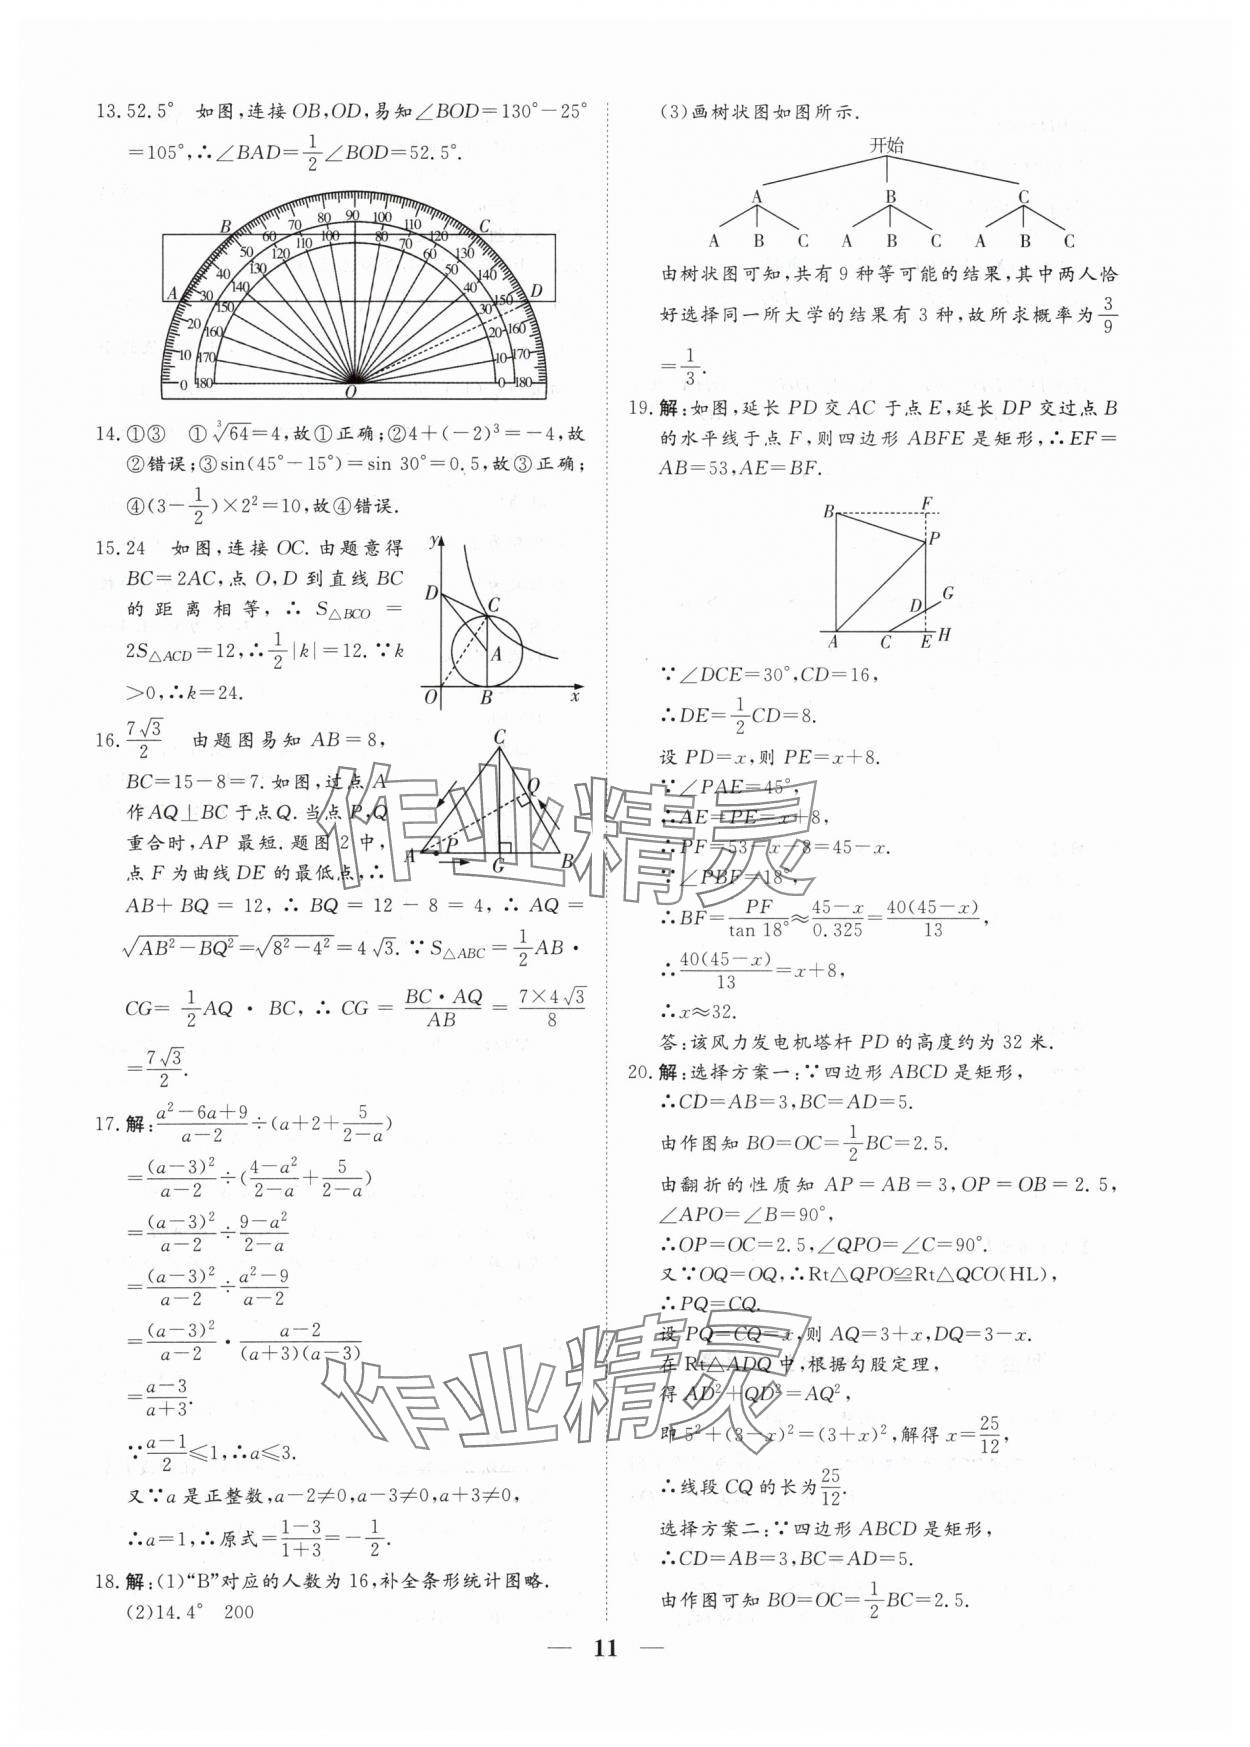 13.52.5° 如图,连接OB,OD,易知∠BOD=130°-25°
=105°,∴∠BAD=1/2∠BOD=52.5°.
14.①③ ①∛64=4,故①正确;②4+(-2)³=-4,故
②错误;③sin(45°-15°)=sin 30°=0.5,故③正确;
④(3-1/2)×2²=10,故④错误.
15.24 如图,连接OC.由题意得
BC=2AC,点O,D到直线BC
的距离相等,∴S△BCO=
2S△ACD=12,∴1/2|k|=12.∵k
>0,∴k=24.
y
D
C
A
O
B
x
16.7√3/2 由题图易知AB=8,
BC=15-8=7.如图,过点A
作AQ⊥BC于点Q.当点P,Q
重合时,AP最短.题图2中,
点F为曲线DE的最低点,∴
AB+BQ=12,∴BQ=12-8=4,∴AQ=
√(AB²-BQ²)=√(8²-4²)=4√3.∵S△ABC=1/2AB·
CG=1/2AQ·BC,∴CG=BC·AQ/AB=7×4√3/8
=7√3/2.
C
Q
A
P
G
B
17.解:(a²-6a+9)/(a-2)÷(a+2+5/(2-a))
=(a-3)²/(a-2)÷((4-a²)/(2-a)+5/(2-a))
=(a-3)²/(a-2)÷(9-a²)/(2-a)
=(a-3)²/(a-2)÷(a²-9)/(a-2)
=(a-3)²/(a-2)·(a-2)/((a+3)(a-3))
=(a-3)/(a+3).
∵(a-1)/2≤1,∴a≤3.
又∵a是正整数,a-2≠0,a-3≠0,a+3≠0,
∴a=1,∴原式=(1-3)/(1+3)=-1/2.
18.解:(1)“B”对应的人数为16,补全条形统计图略.
(2)14.4° 200
(3)画树状图如图所示.
开始
A B C
A B C A B C A B C
由树状图可知,共有9种等可能的结果,其中两人恰
好选择同一所大学的结果有3种,故所求概率为3/9
=1/3.
19.解:如图,延长PD交AC于点E,延长DP交过点B
的水平线于点F,则四边形ABFE是矩形,∴EF=
AB=53,AE=BF.
B
F
P
G
D
A C E H
∵∠DCE=30°,CD=16,
∴DE=1/2CD=8.
设PD=x,则PE=x+8.
∵∠PAE=45°,
∴AE=PE=x+8,
∴PF=53-x-8=45-x.
∵∠PBF=18°,
∴BF=PF/tan 18°≈(45-x)/0.325=40(45-x)/13,
∴40(45-x)/13=x+8,
∴x≈32.
答:该风力发电机塔杆PD的高度约为32米.
20.解:选择方案一:∵四边形ABCD是矩形,
∴CD=AB=3,BC=AD=5.
由作图知BO=OC=1/2BC=2.5.
由翻折的性质知AP=AB=3,OP=OB=2.5,
∠APO=∠B=90°,
∴OP=OC=2.5,∠QPO=∠C=90°.
又∵OQ=OQ,∴Rt△QPO≌Rt△QCO(HL),
∴PQ=CQ.
设PQ=CQ=x,则AQ=3+x,DQ=3-x.
在Rt△ADQ中,根据勾股定理,
得AD²+QD²=AQ²,
即5²+(3-x)²=(3+x)²,解得x=25/12,
∴线段CQ的长为25/12.
选择方案二:∵四边形ABCD是矩形,
∴CD=AB=3,BC=AD=5.
由作图可知BO=OC=1/2BC=2.5.
作业精灵
作业精灵
— 11 —